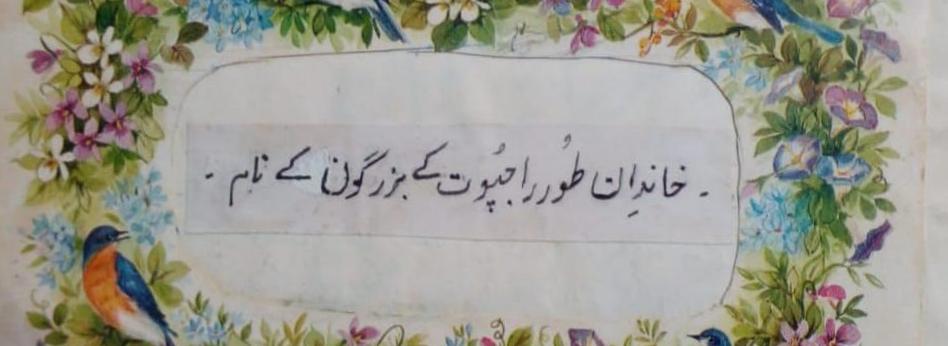 ۔ خاندانِ طُور راجپُوت کے بزرگوں کے نام ۔